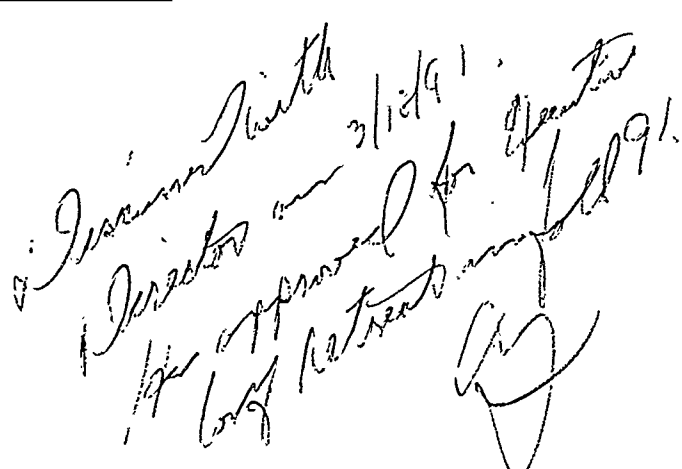 Discussed with
Director on 3/12/91.
He approved for
Conf Retreat in fall 91.